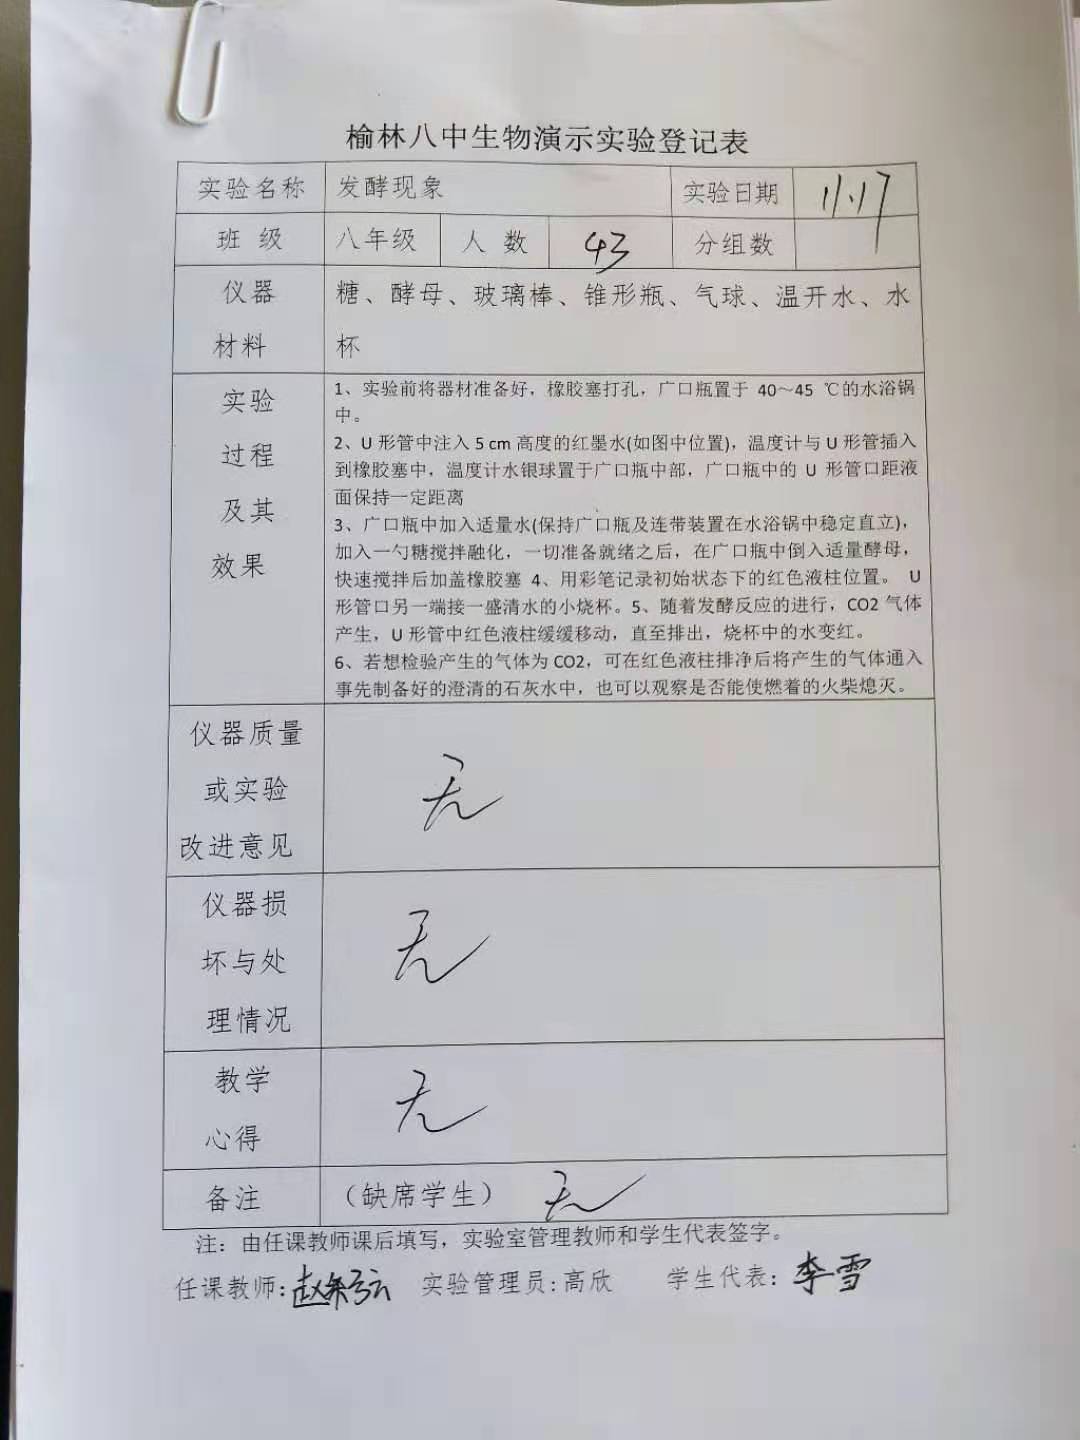 榆林八中生物演示实验登记表
实验名称 发酵现象 实验日期 11.17
班 级 八年级 人 数 43 分组数
仪器 糖、酵母、玻璃棒、锥形瓶、气球、温开水、水
材料 杯
实验 1、实验前将器材准备好，橡胶塞打孔，广口瓶置于 40～45 ℃的水浴锅
中。
过程 2、U 形管中注入 5 cm 高度的红墨水(如图中位置)，温度计与 U 形管插入
到橡胶塞中，温度计水银球置于广口瓶中部，广口瓶中的 U 形管口距液
及其 面保持一定距离
3、广口瓶中加入适量水(保持广口瓶及连带装置在水浴锅中稳定直立)，
效果 加入一勺糖搅拌融化，一切准备就绪之后，在广口瓶中倒入适量酵母，
快速搅拌后加盖橡胶塞 4、用彩笔记录初始状态下的红色液柱位置。 U
形管口另一端接一盛清水的小烧杯。5、随着发酵反应的进行，CO2 气体
产生，U 形管中红色液柱缓缓移动，直至排出，烧杯中的水变红。
6、若想检验产生的气体为 CO2，可在红色液柱排净后将产生的气体通入
事先制备好的澄清的石灰水中，也可以观察是否能使燃着的火柴熄灭。
仪器质量
或实验 无
改进意见
仪器损
坏与处 无
理情况
教学 无
心得
备注 （缺席学生） 无
注：由任课教师课后填写，实验室管理教师和学生代表签字。
任课教师: 实验管理员:高欣 学生代表: 李雪